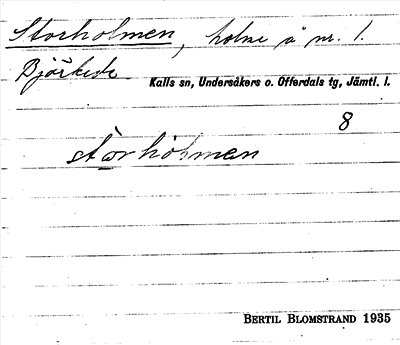 Storholmen, holme å nr. 1.
Björkede
Kalls sn, Undersåkers o. Offerdals tg, Jämtl. l.
8
storholmen
BERTIL BLOMSTRAND 1935